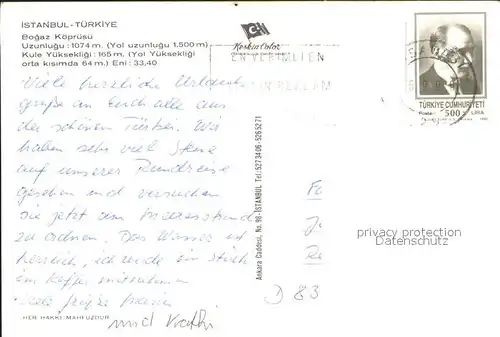 İSTANBUL-TÜRKİYE
Boğaz Köprüsü
Uzunluğu : 1074 m. (Yol uzunluğu 1.500 m)
Kule Yüksekliği : 165 m. (Yol Yüksekliği
orta kısımda 64 m.) Eni : 33,40
Keskin Color
EN VERİMLİ EN
REKLAM
TÜRKİYE CUMHURİYETİ
Posta 500 LİRA
Viele herzliche Urlaubs
grüße an Euch alle aus
der schönen Türkei. Wir
haben sehr viel Steine
auf unserer Rundreise
gesehen und versuchen
sie jetzt am Meeresstrand
zu ordnen. Das Wasser ist
herrlich, ich werde ein Stück
im Koffer mitnehmen
Viele Grüße
und
HER HAKKI MAHFUZDUR
Ankara Caddesi, No. 98 - İSTANBUL Tel: 5273406 - 5265271
Fa
Ju
Re
D 83
privacy protection
Datenschutz